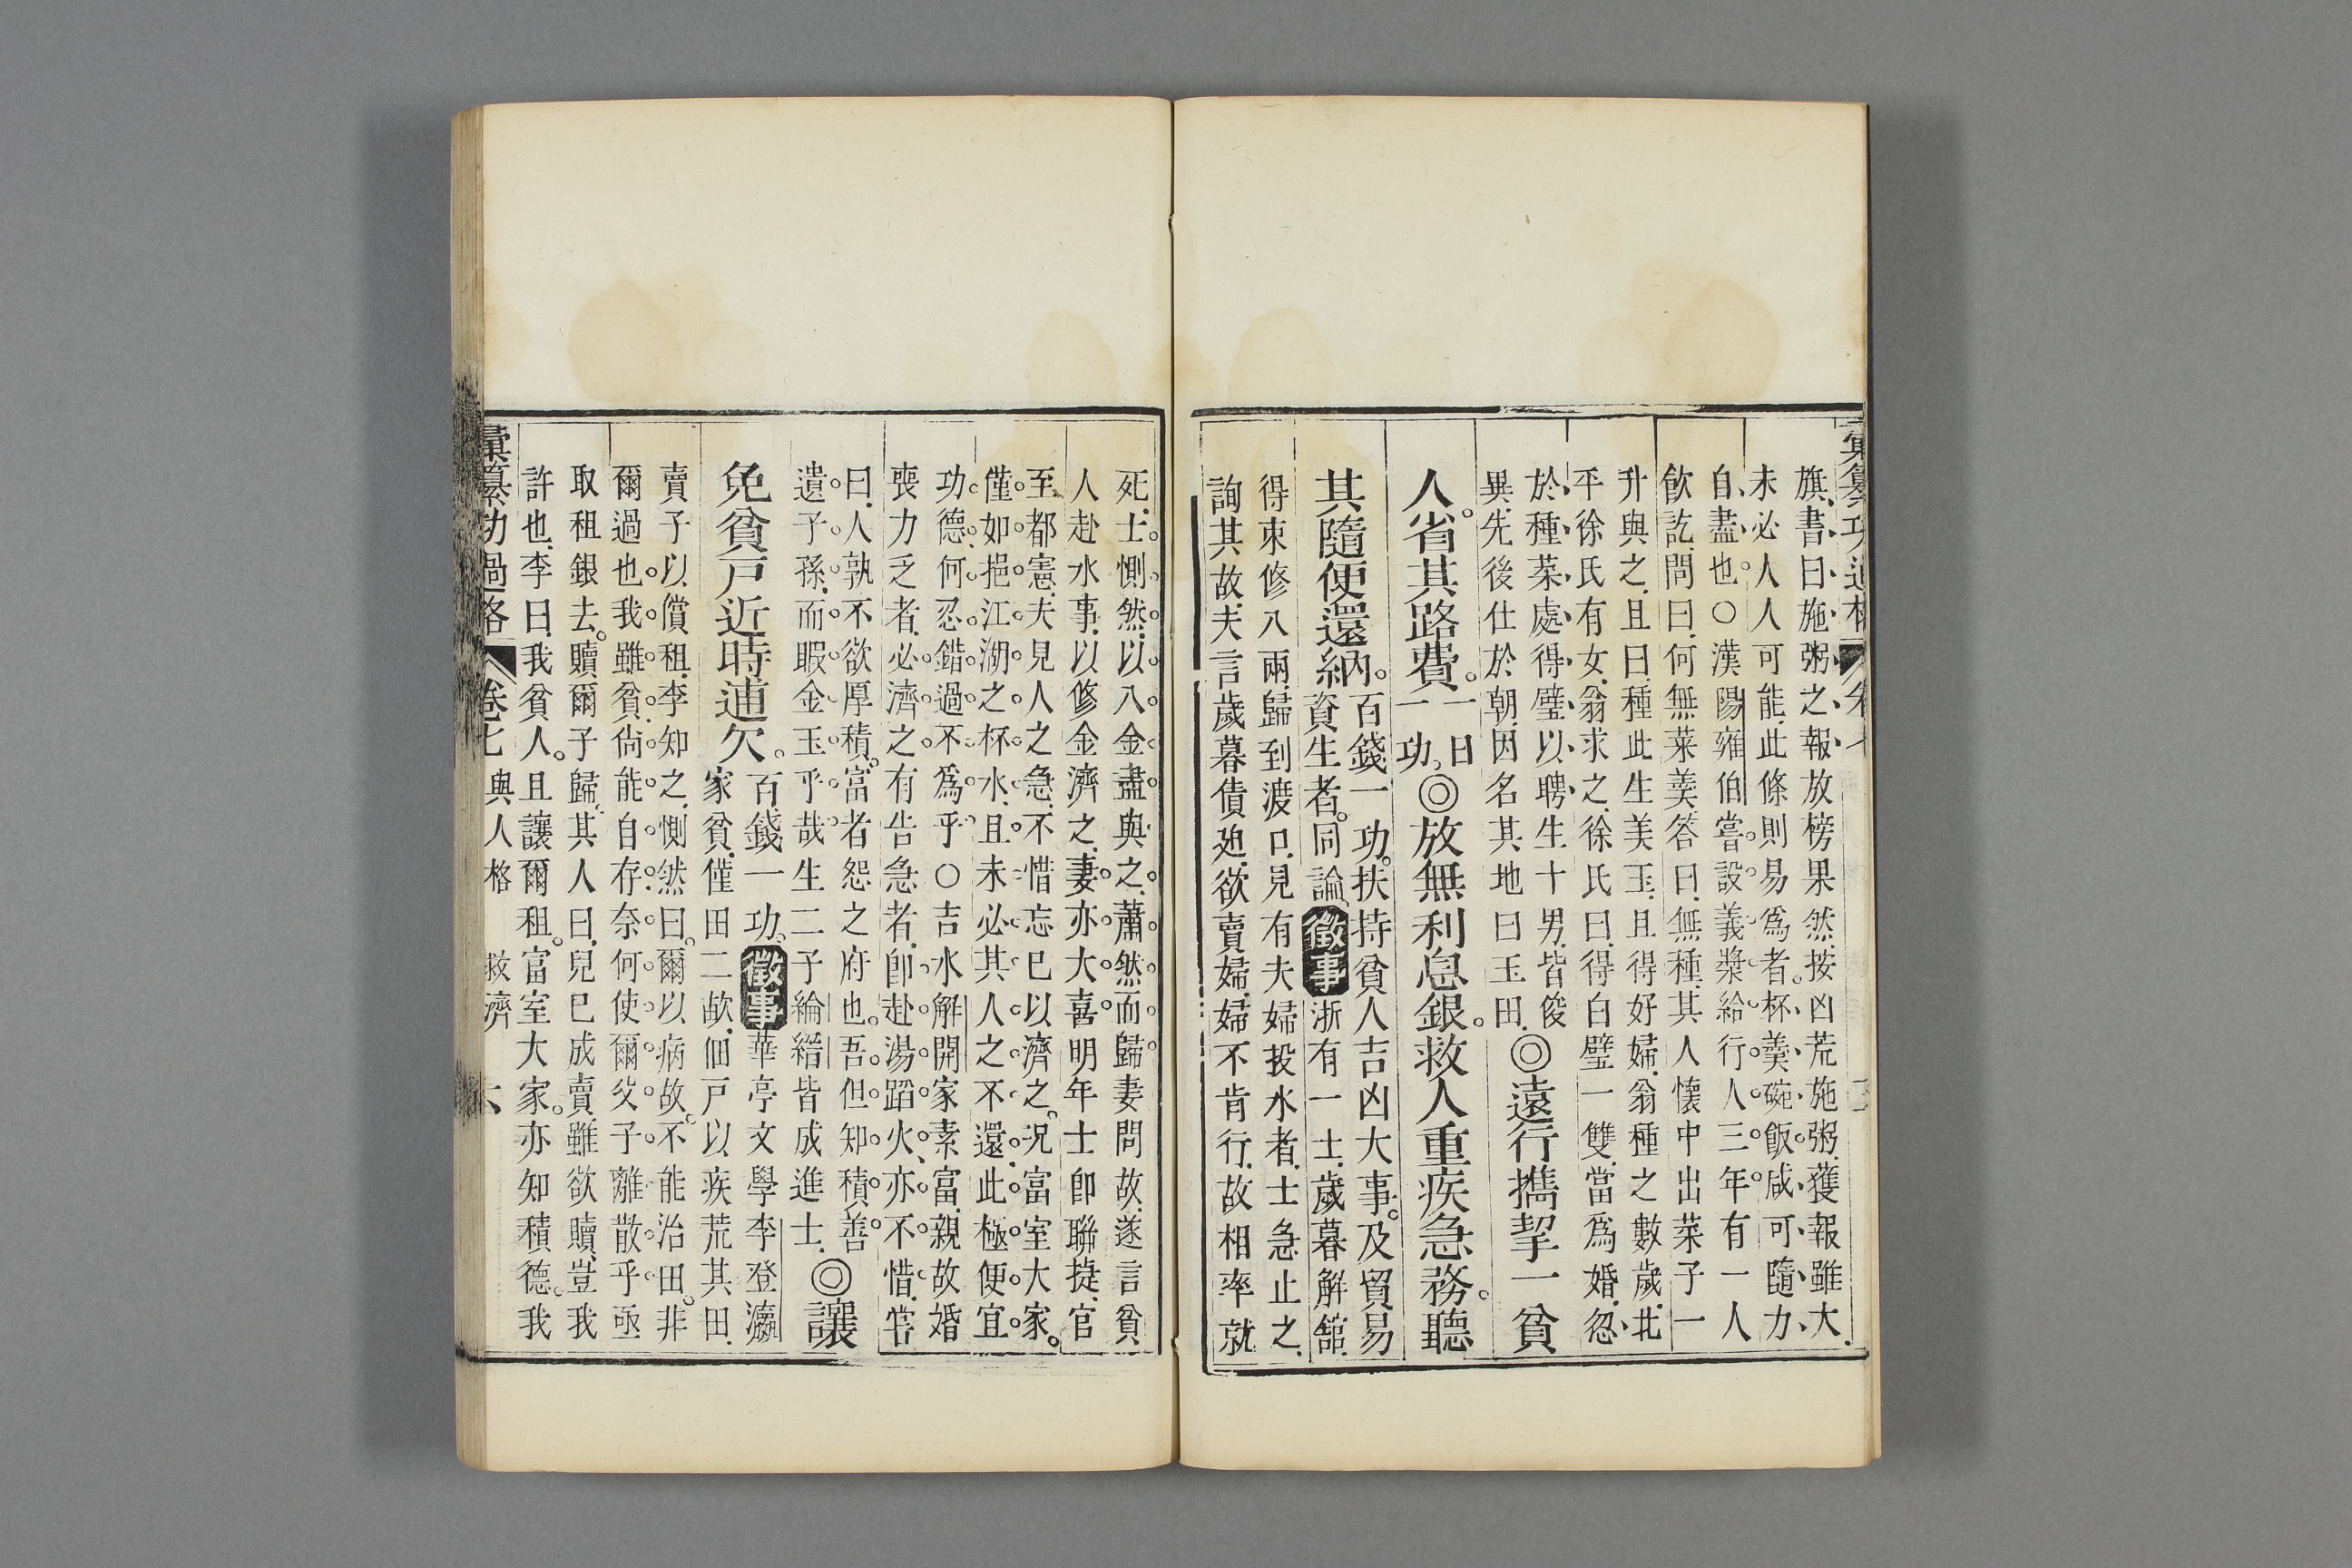 彙纂功過格 卷七
旗書曰施粥之報放榜果然按凶荒施粥獲報雖大
未必人人可能此條則易爲者杯羹碗飯咸可隨力
自盡也○漢陽雍伯嘗設義漿給行人三年有一人
飲訖問曰何無菜羹答曰無種其人懷中出菜子一
升與之且曰種此生美玉且得好婦翁種之數歲北
平徐氏有女翁求之徐氏曰得白璧一雙當爲婚忽
於種菜處得璧以聘生十男皆俊
異先後仕於朝因名其地曰玉田◎遠行攜挈一貧
人省其路費一日一功◎放無利息銀救人重疾急務聽
其隨便還納百錢一功扶持貧人吉凶大事及貿易
資生者同論徵事浙有一士歲暮解館
得束修八兩歸到渡口見有夫婦投水者士急止之
詢其故夫言歲暮債廹欲賣婦婦不肯行故相率就
死士惻然以八金盡與之蕭然而歸妻問故遂言貧
人赴水事以修金濟之妻亦大喜明年士卽聯捷官
至都憲夫見人之急不惜忘已以濟之況富室大家
僅如挹江湖之杯水且未必其人之不還此極便宜
功德何忍錯過不爲乎○吉水解開家素富親故婚
喪力乏者必濟之有告急者卽赴湯蹈火亦不惜嘗
曰人孰不欲厚積富者怨之府也吾但知積善
遺子孫而暇金玉乎哉生二子綸縉皆成進士◎讓
免貧戸近時逋欠百錢一功徵事華亭文學李登瀛
家貧僅田二畝佃戸以疾荒其田
賣子以償租李知之惻然曰爾以病故不能治田非
爾過也我雖貧尙能自存奈何使爾父子離散乎亟
取租銀去贖爾子歸其人曰兒已成賣雖欲贖豈我
許也李曰我貧人且讓爾租富室大家亦知積德我
彙纂功過格 卷七 與人格 救濟 六